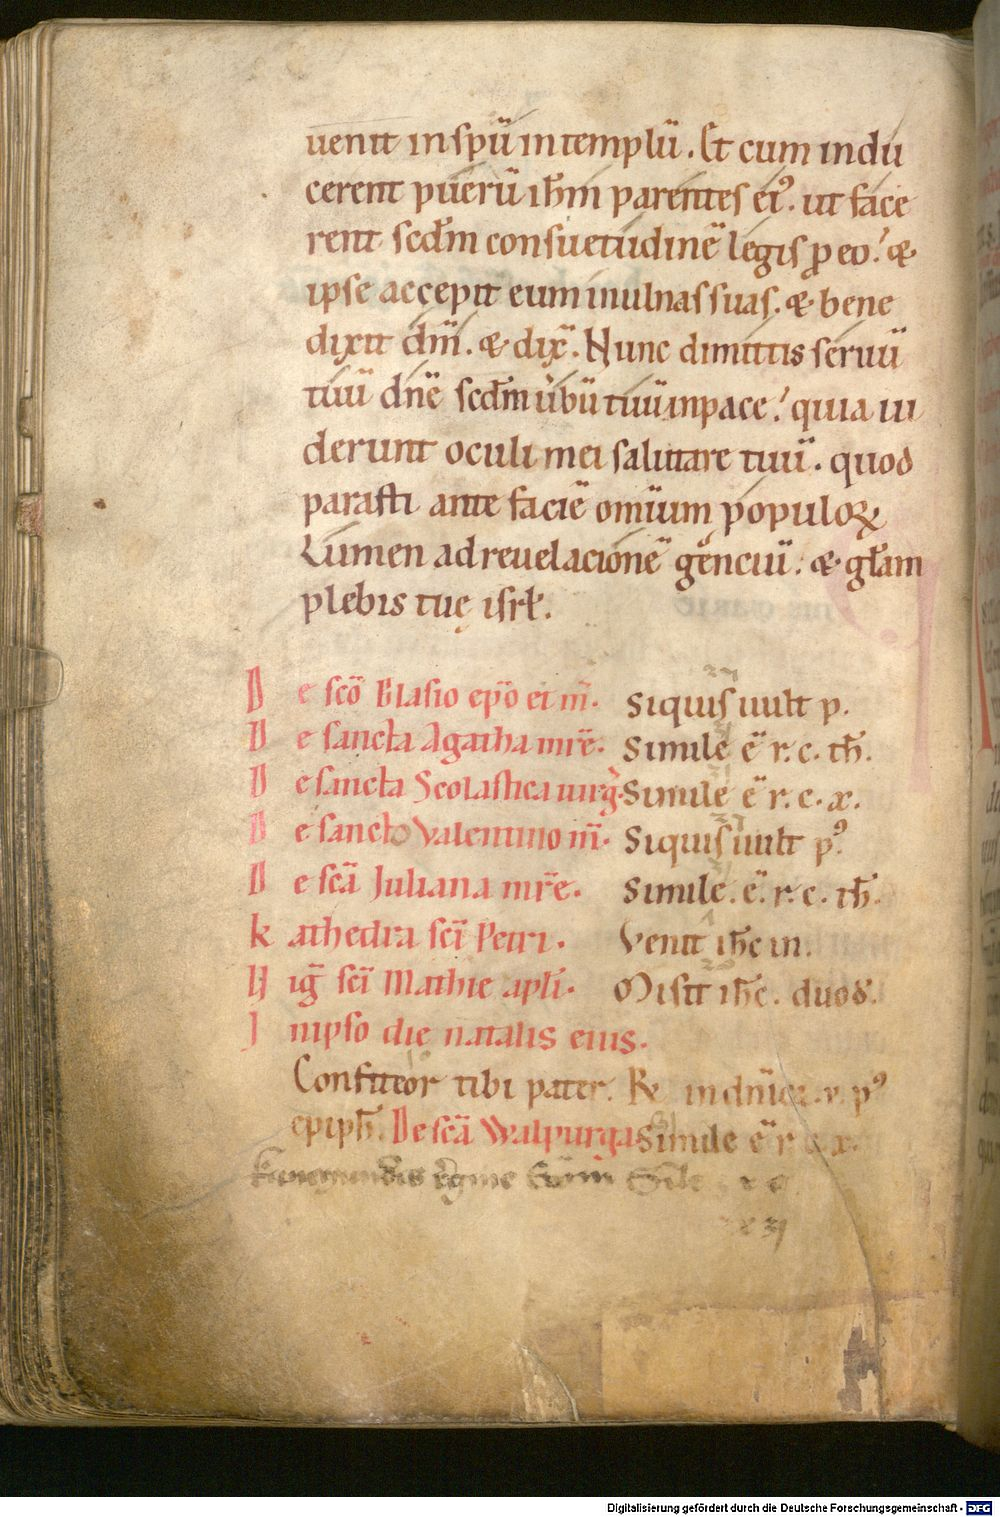 uenit in spū in templū. Et cum indu
cerent puerū ihm̄ parentes ei᷒. ut face
rent scdm̄ consuetudinē legis ꝓ eo. &
ipse accepit eum in ulnas suas. & bene
dixit dm̄. & dix̄. Nunc dimittis seruū
tuū dn̄e scdm̄ uerbū tuū in pace. quia ui
derunt oculi mei salutare tuū. quod
parasti ante faciē omīum populoꝝ
Lumen ad reuelacionē genciū. & gl̄am
plebis tuę isrl̄.
De scō Blasio ep̄o et m̄. Si quis uult p.
De sancta Agatha mr̄e. Simile ē r. c. th̄.
De sancta Scolastica uirg. Simile ē r. c. x.
De sancto Valentino m̄. Si quis uult p᷒.
De scā Juliana mr̄e. Simile. ē. r. c. th̄.
kathedra scī Petri. Venit ihc̄ in.
Uiḡ scī Mathie apl̄i. Misit ihc̄. duod.
In ipso die natalis eius.
Confiteor tibi pater. R̄e in dn̄ica. v. p᷒
epiph̄. De scā Walpurga Simile ē r c x.
kunegundis